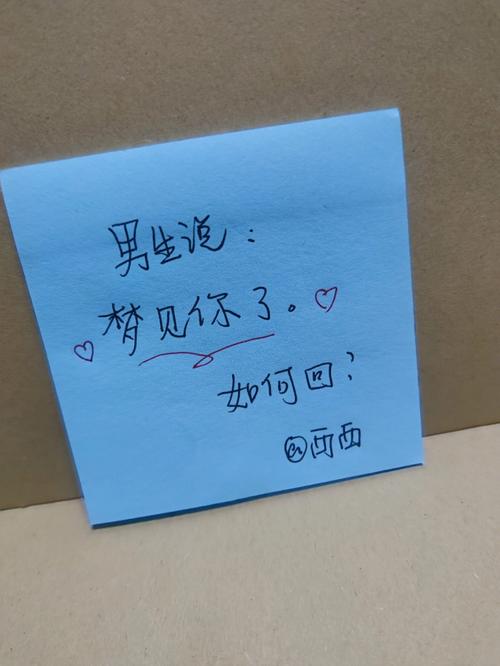 男生说:
梦见你了。
如何回?
@西西